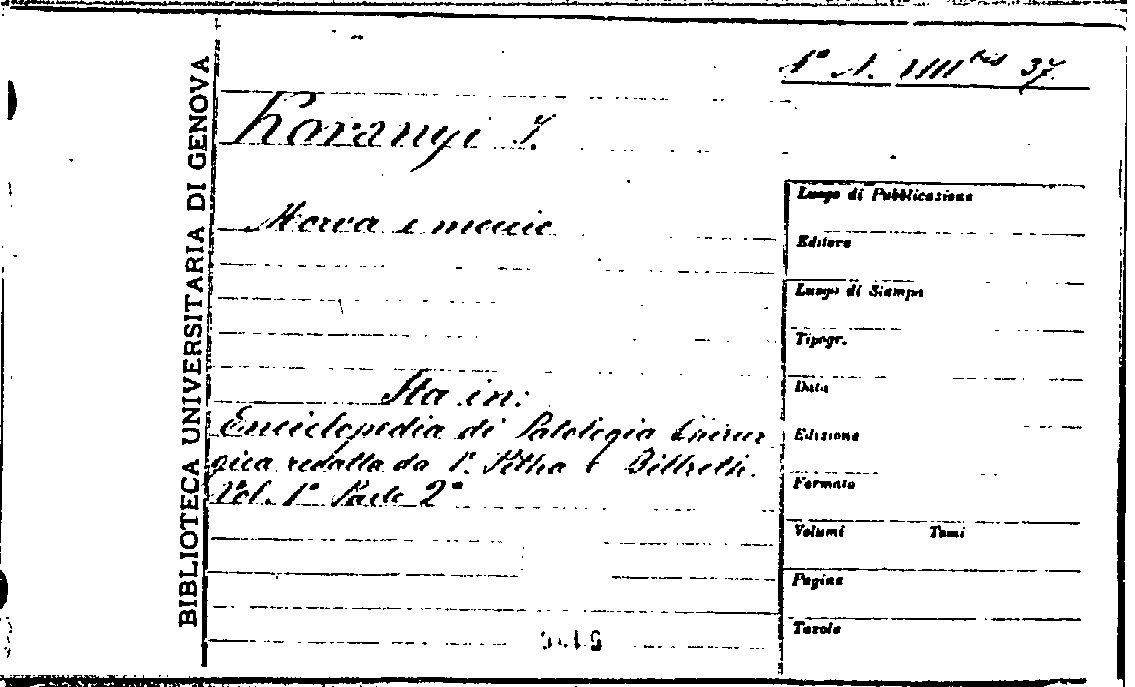 BIBLIOTECA UNIVERSITARIA DI GENOVA
1° A. VIII bis 37.
Koranyi I.
Morva e moccio
Sta in:
Enciclopedia di Patologia Chirur
gica redatta da P. Pitha e Billroth.
Vol. 1° Parte 2ª
Luogo di Pubblicazione
Editore
Luogo di Stampa
Tipogr.
Data
Edizione
Formato
Volumi Tomi
Pagine
Tavole